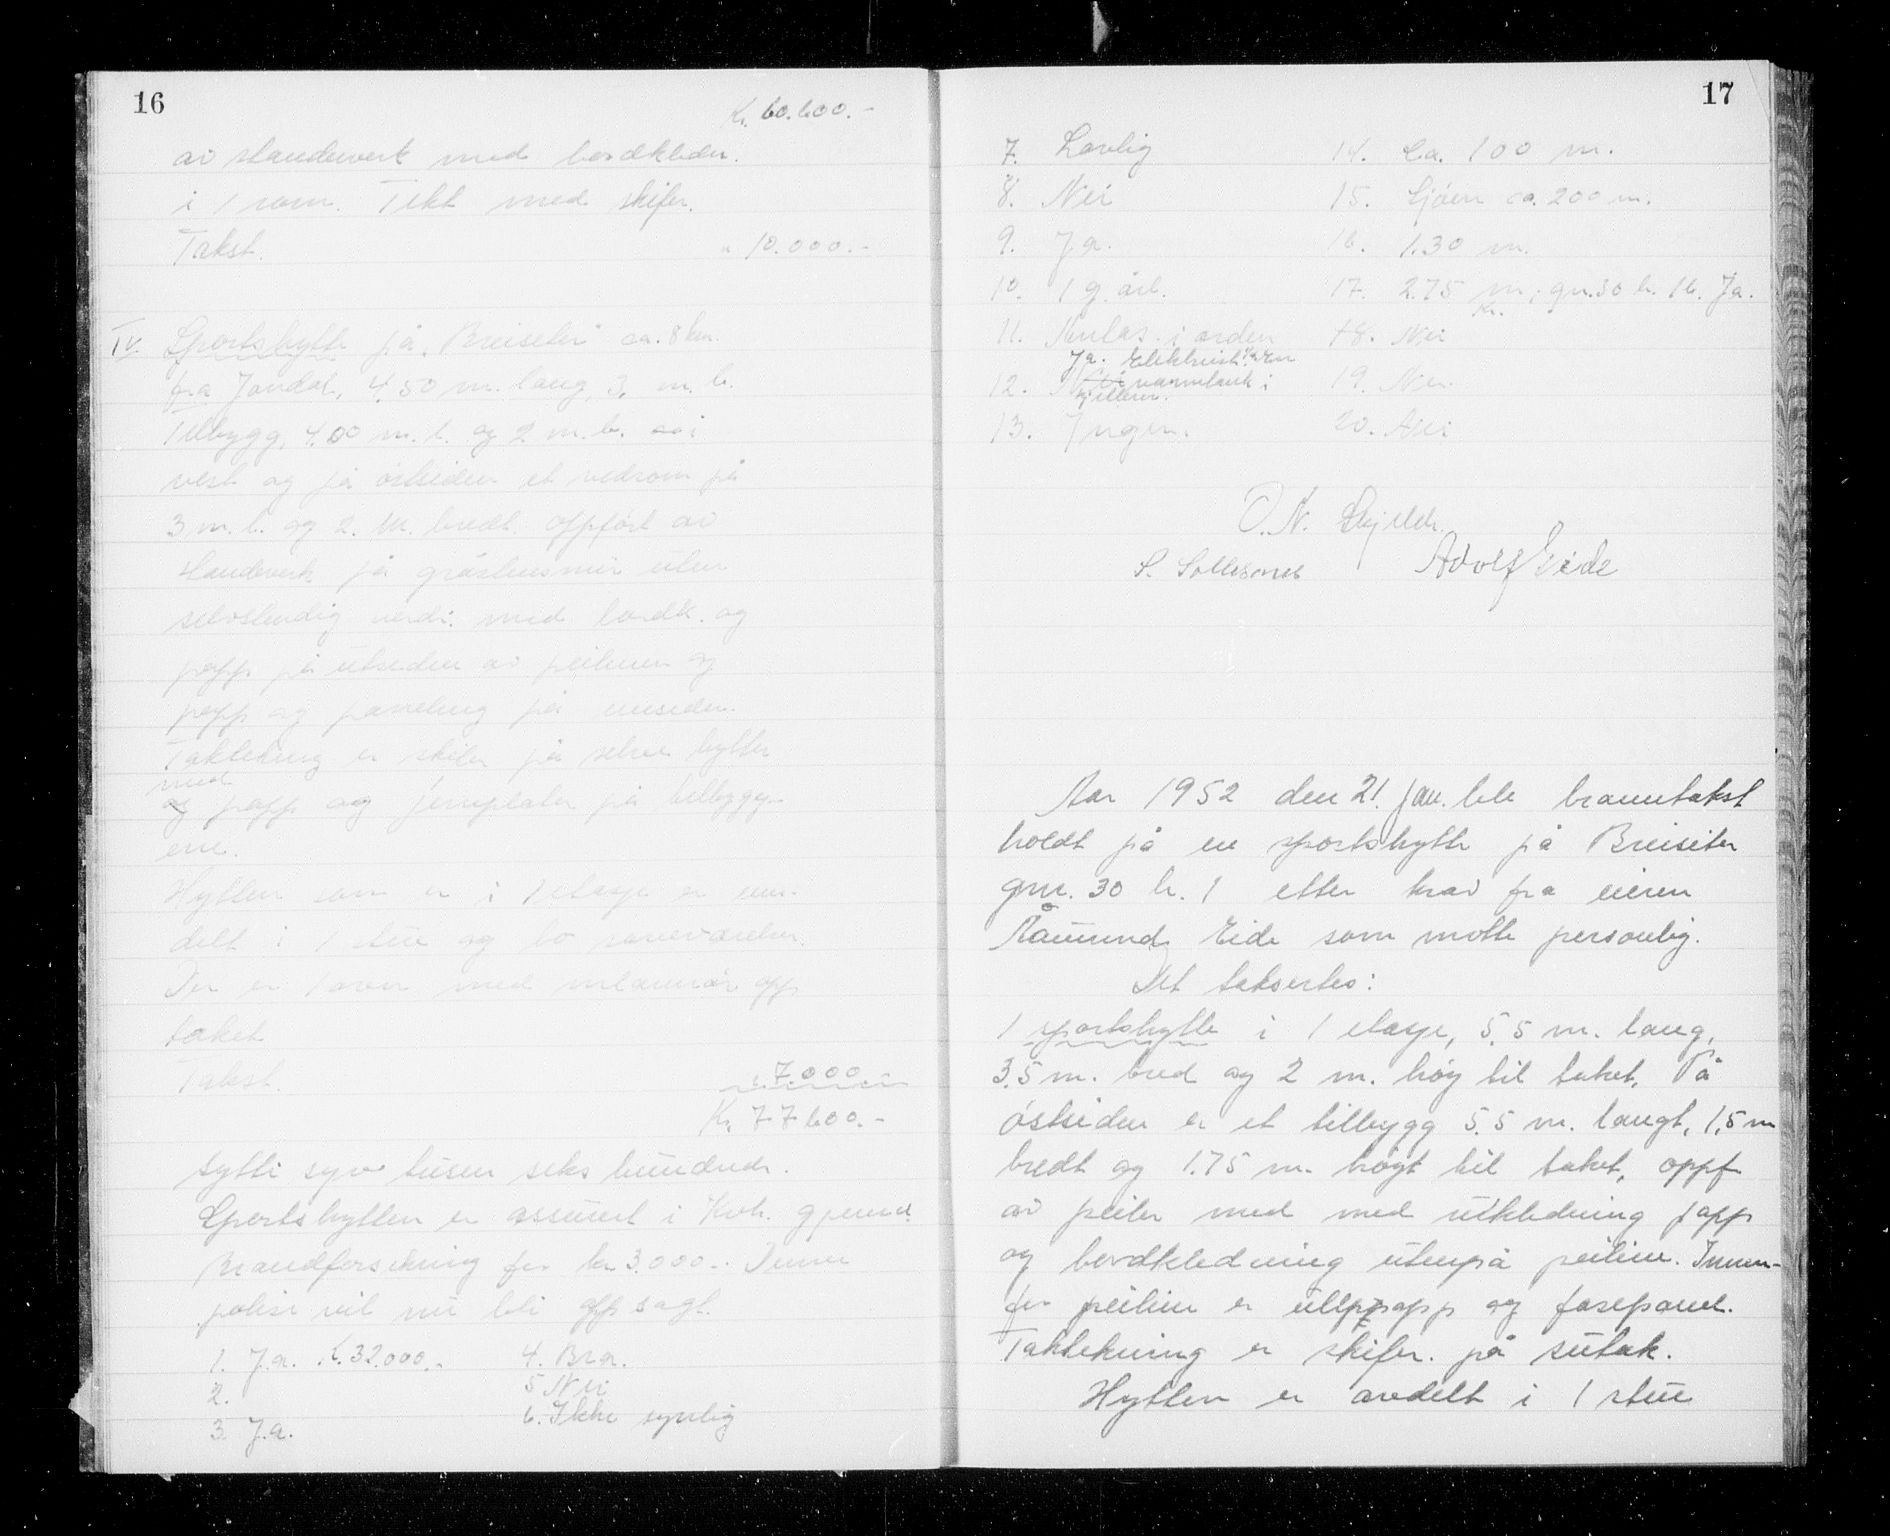 16
Kr. 60.600.-
av standerverk med bordkledn.
i 1 rom. Tekt med skifer.
Takst. " 10.000.-
IV. Sportshytte på "Breiseter" ca. 8 km.
fra Jondal, 4,50 m. lang, 3, m. b.
Tilbygg, 4.00 m. l. og 2 m. b. i
vest og på østsiden et vedrom på
3 m. l. og 2. m. bredt oppført av
standverk på gråstensmur uten
selvstendig verdi: med bordk. og
papp på utsiden av peilinen og
papp og panneling på innsiden.
Taktekning er skifer på selve hytten
med
og papp og jernplater på tilbygg-
ene.
Hytten som er i 1 etasje er inn-
delt i 1 stue og to soveværelser
Der er 1 ovn med rør opp
taket
Takst. " 7.000
Kr. 77.600.-
sytti syv tusen seks hundrede.
Sportshytten er assurert i Kvh. gjensd.
Brandforsikring for kr 3.000.-. Denne
polise vil nu bli oppsagt.
1. Ja. k. 32.000.- 4. Bra.
2. 5 Nei
3. Ja. 6. Ikke synlig
17
7. Lovlig 14. Ca. 100 m.
8. Nei 15. Sjøen ca. 200 m.
9. Ja. 16. 1.30 m.
10. 1 g. årl. 17. 2.75 m, gn. 30 b. 16. Ja.
Kr.
11. i orden 18. Nei
Ja. Elektrisk
12. Nei varmtank i 19. Nei.
kjelleren.
13. Ingen. 20. Nei
O. N. Skjelde.
S. Sollesnes Adolf Eide
Aar 1952 den 21. jan. ble branntakst
holdt på en sportshytte på Breiseter
gnr. 30 b. 1 etter krav fra eieren
Åmund Eide som møtte personlig.
Det taksertes:
1 sportshytte i 1 etasje, 5.5 m. lang,
3.5 m. bred og 2 m. høy til taket. På
østsiden er et tilbygg 5.5 m. langt, 1,5 m
bredt og 1.75 m. høyt til taket, oppf
av peiler med med utkledning papp
og bordkledning utenpå peiline. Innen-
for peiline er ullpapp og fasepanel.
Taktekning er skifer. på sutak.
Hytten er avdelt i 1 stue